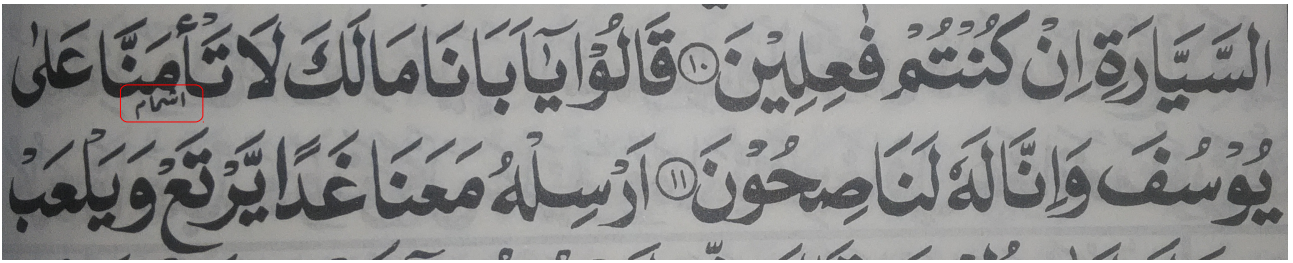 السَّيَّارَةِ اِنْ كُنْتُمْ فٰعِلِيْنَ ۝۱۰ قَالُوْا يٰٓاَبَانَا مَالَكَ لَا تَأْمَنَّا عَلٰى
اشمام
يُوْسُفَ وَاِنَّا لَهٗ لَنَاصِحُوْنَ ۝۱۱ اَرْسِلْهُ مَعَنَا غَدًا يَّرْتَعْ وَيَلْعَبْ